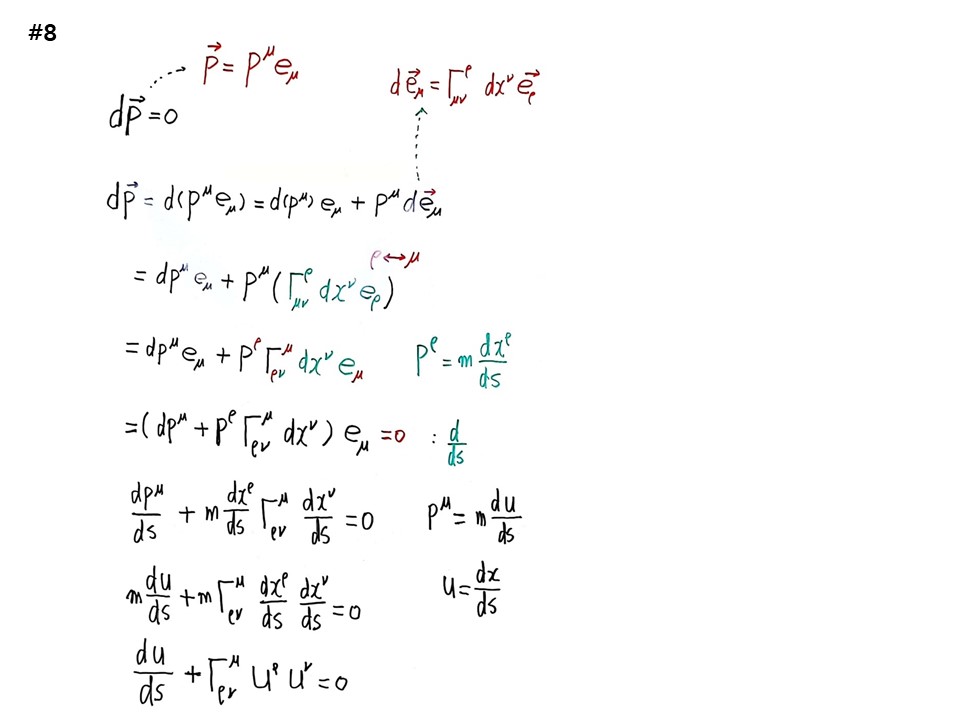 #8
p⃗ = p^μ e_μ
de⃗_μ = Γ^ρ_μν dx^ν e⃗_ρ
dp⃗ = 0
dp⃗ = d(p^μ e_μ) = d(p^μ) e_μ + p^μ de⃗_μ
ρ↔μ
= dp^μ e_μ + p^μ (Γ^ρ_μν dx^ν e_ρ)
= dp^μ e_μ + p^ρ Γ^μ_ρν dx^ν e_μ
p^ρ = m dx^ρ/ds
= (dp^μ + p^ρ Γ^μ_ρν dx^ν) e_μ = 0 : d/ds
dp^μ/ds + m dx^ρ/ds Γ^μ_ρν dx^ν/ds = 0
p^μ = m du/ds
m du/ds + m Γ^μ_ρν dx^ρ/ds dx^ν/ds = 0
u = dx/ds
du/ds + Γ^μ_ρν u^ρ u^ν = 0